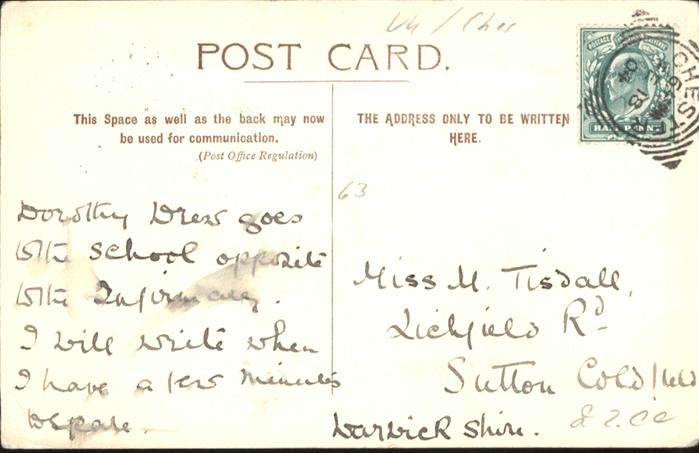 UK / Ches
POST CARD.
This Space as well as the back may now
be used for communication.
(Post Office Regulation)
THE ADDRESS ONLY TO BE WRITTEN
HERE.
HALF PENNY
CHEST
63
Dorothy Drew goes
to the School opposite
to the Infirmary.
I will write when
I have a few minutes
to spare.
Miss M. Tisdall,
Lichfield Rd
Sutton Coldfield
Warwick Shire.